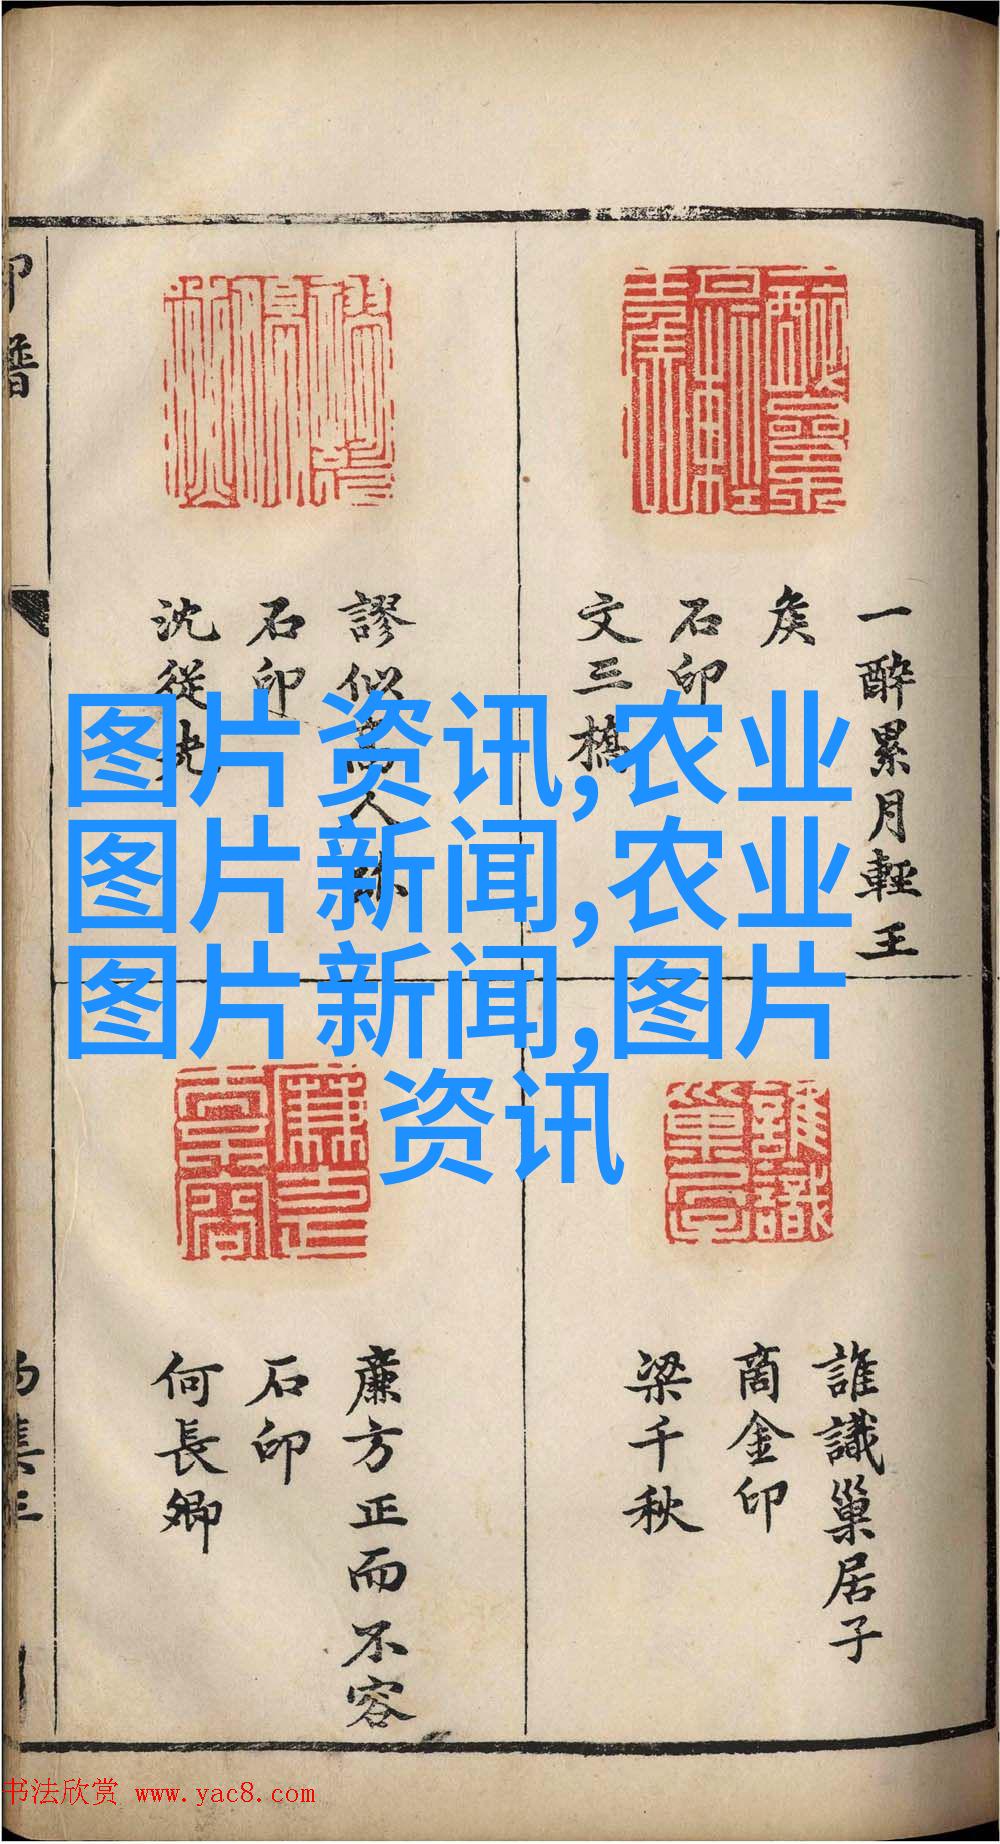 图片资讯,农业
图片新闻,农业
图片新闻,图片
资讯
一醉累月輕王
矦
石印
文三橋
謬似
石印
沈從先
誰識巢居子
商金印
梁千秋
廉方正而不容
石印
何長卿
印譜
书法欣赏 www.yac8.com